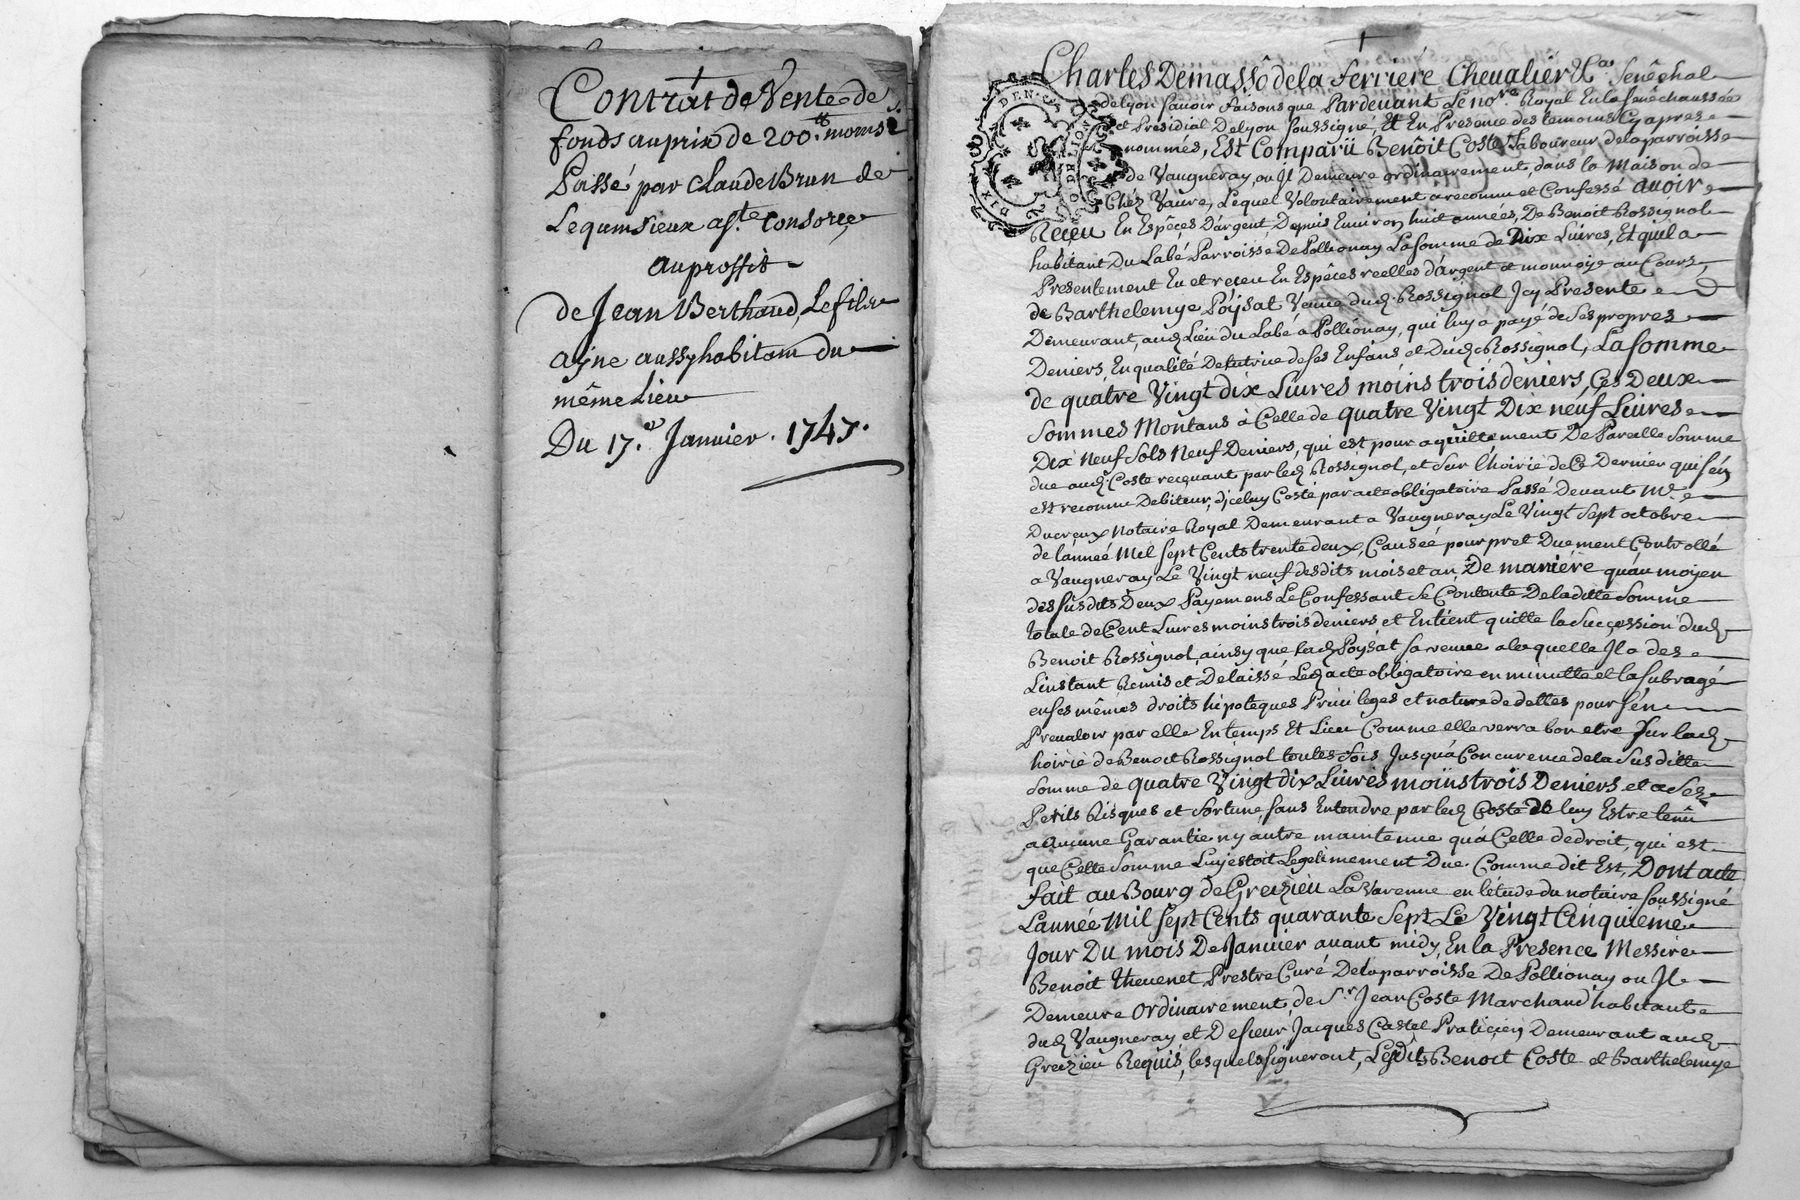 Contrat de Vente de
fonds au prix de 200.tt moins
Passé par Claude Brun de
Lequmsieux consorce
au proffit
de Jean Berthaud, Le fils
ayne aussy habitam du
même Lieu
Du 17.e Janvier. 1747.
Charles Demassô de la Ferriere Chevalier Senêchal
de Lyon sçavoir faisons que Pardevant Le no.re Royal En la senêchaussée
et Presidial De Lyon soussigné, Et En Presence des temoins Cy apres
nommés, Est Comparü Benoit Coste Laboureur de la parroisse
de Vaugneray, ou Jl Demeure ordinairement, dans la Maison de
Chéz Vaure, Lequel Volontairement a reconnu et Confessé avoir
Reçeu En Espêces D'argent Depuis Environ huit années, De Benoit Rossignol
habitant Du Labé Parroisse De Pollionay La somme de Dix Livres, Et quil a
Presentement Eu et reçeu En Espêces reelles d'argent et monnoye au Cours,
de Barthelemye Poysat Veuve dud. Rossignol Jcy Presente
Demeurant, aud Lieu du Labé a Pollionay, qui luy a payé de ses propres
Deniers En qualité De tutrice de ses Enfans et Dud. Rossignol, La somme
de quatre Vingt dix Livres moins trois deniers, Ces Deux
Sommes Montans à Celle de quatre Vingt Dix neuf Livres
Dix Neuf Sols Neuf Deniers, qui est pour a quittement De Pareille Somme
due aud. Coste requant par led Rossignol, et sur l'hoirie de Ce Dernier qui s'en
est reconnu Debiteur, d'jceluy Coste par acte obligatoire Passé Devant M.e
Ducreux Notaire Royal Demeurant a Vaugneray Le Vingt sept octobre
de l'anneé Mil sept Cents trente deux, Causeé pour pret Duement Controllé
a Vaugneray Le Vingt neuf desdits mois et an, De maniére quau moyen
des susdits Deux Payemens Le Confessant se Contente De la ditte Somme
totale de Cent Livres moins trois deniers et En tient quitte la Sucçession dud
Benoit Rossignol, ainsy que lad Poysat sa veuve a laquelle Jl a des
L'instant Remis et Delaissé Led acte obligatoire en minutte et la subrogé
en ses mêmes droits hipoteques Privileges et nature de dettes pour s'en
Prevaloir par elle En temps Et Lieu Comme elle verra bon etre sur lad
hoirie de Benoit Rossignol toutes fois Jusqu'a Concurence de la Susditte
Somme de quatre Vingt dix Livres moins trois Deniers et a ses
Perils Risques et fortune, sans Entendre par led Coste de luy Estre tenü
a Aucune Garantie ny autre maintenue qu'a Celle de droit, qui est
que Cette Somme Luy estoit Legitimement Due. Comme dit Est, Dont acte
fait au Bourg de Greizieu La Varenne en l'étude du notaire soussigné
L'année Mil sept Cents quarante sept Le Vingt Cinquieme
Jour Du mois De Janvier avant midy, En la Presence Messire
Benoit Thevenet Prestre Curé De la parroisse De Pollionay ou Jl
Demeure ordinairement, de S.r Jean Coste Marchand habitant
dud Vaugneray et De sieur Jacques Castel Praticien Demeurant aud
Greizieu Requis, lesquels signeront, Lesdits Benoit Coste et Barthelemye